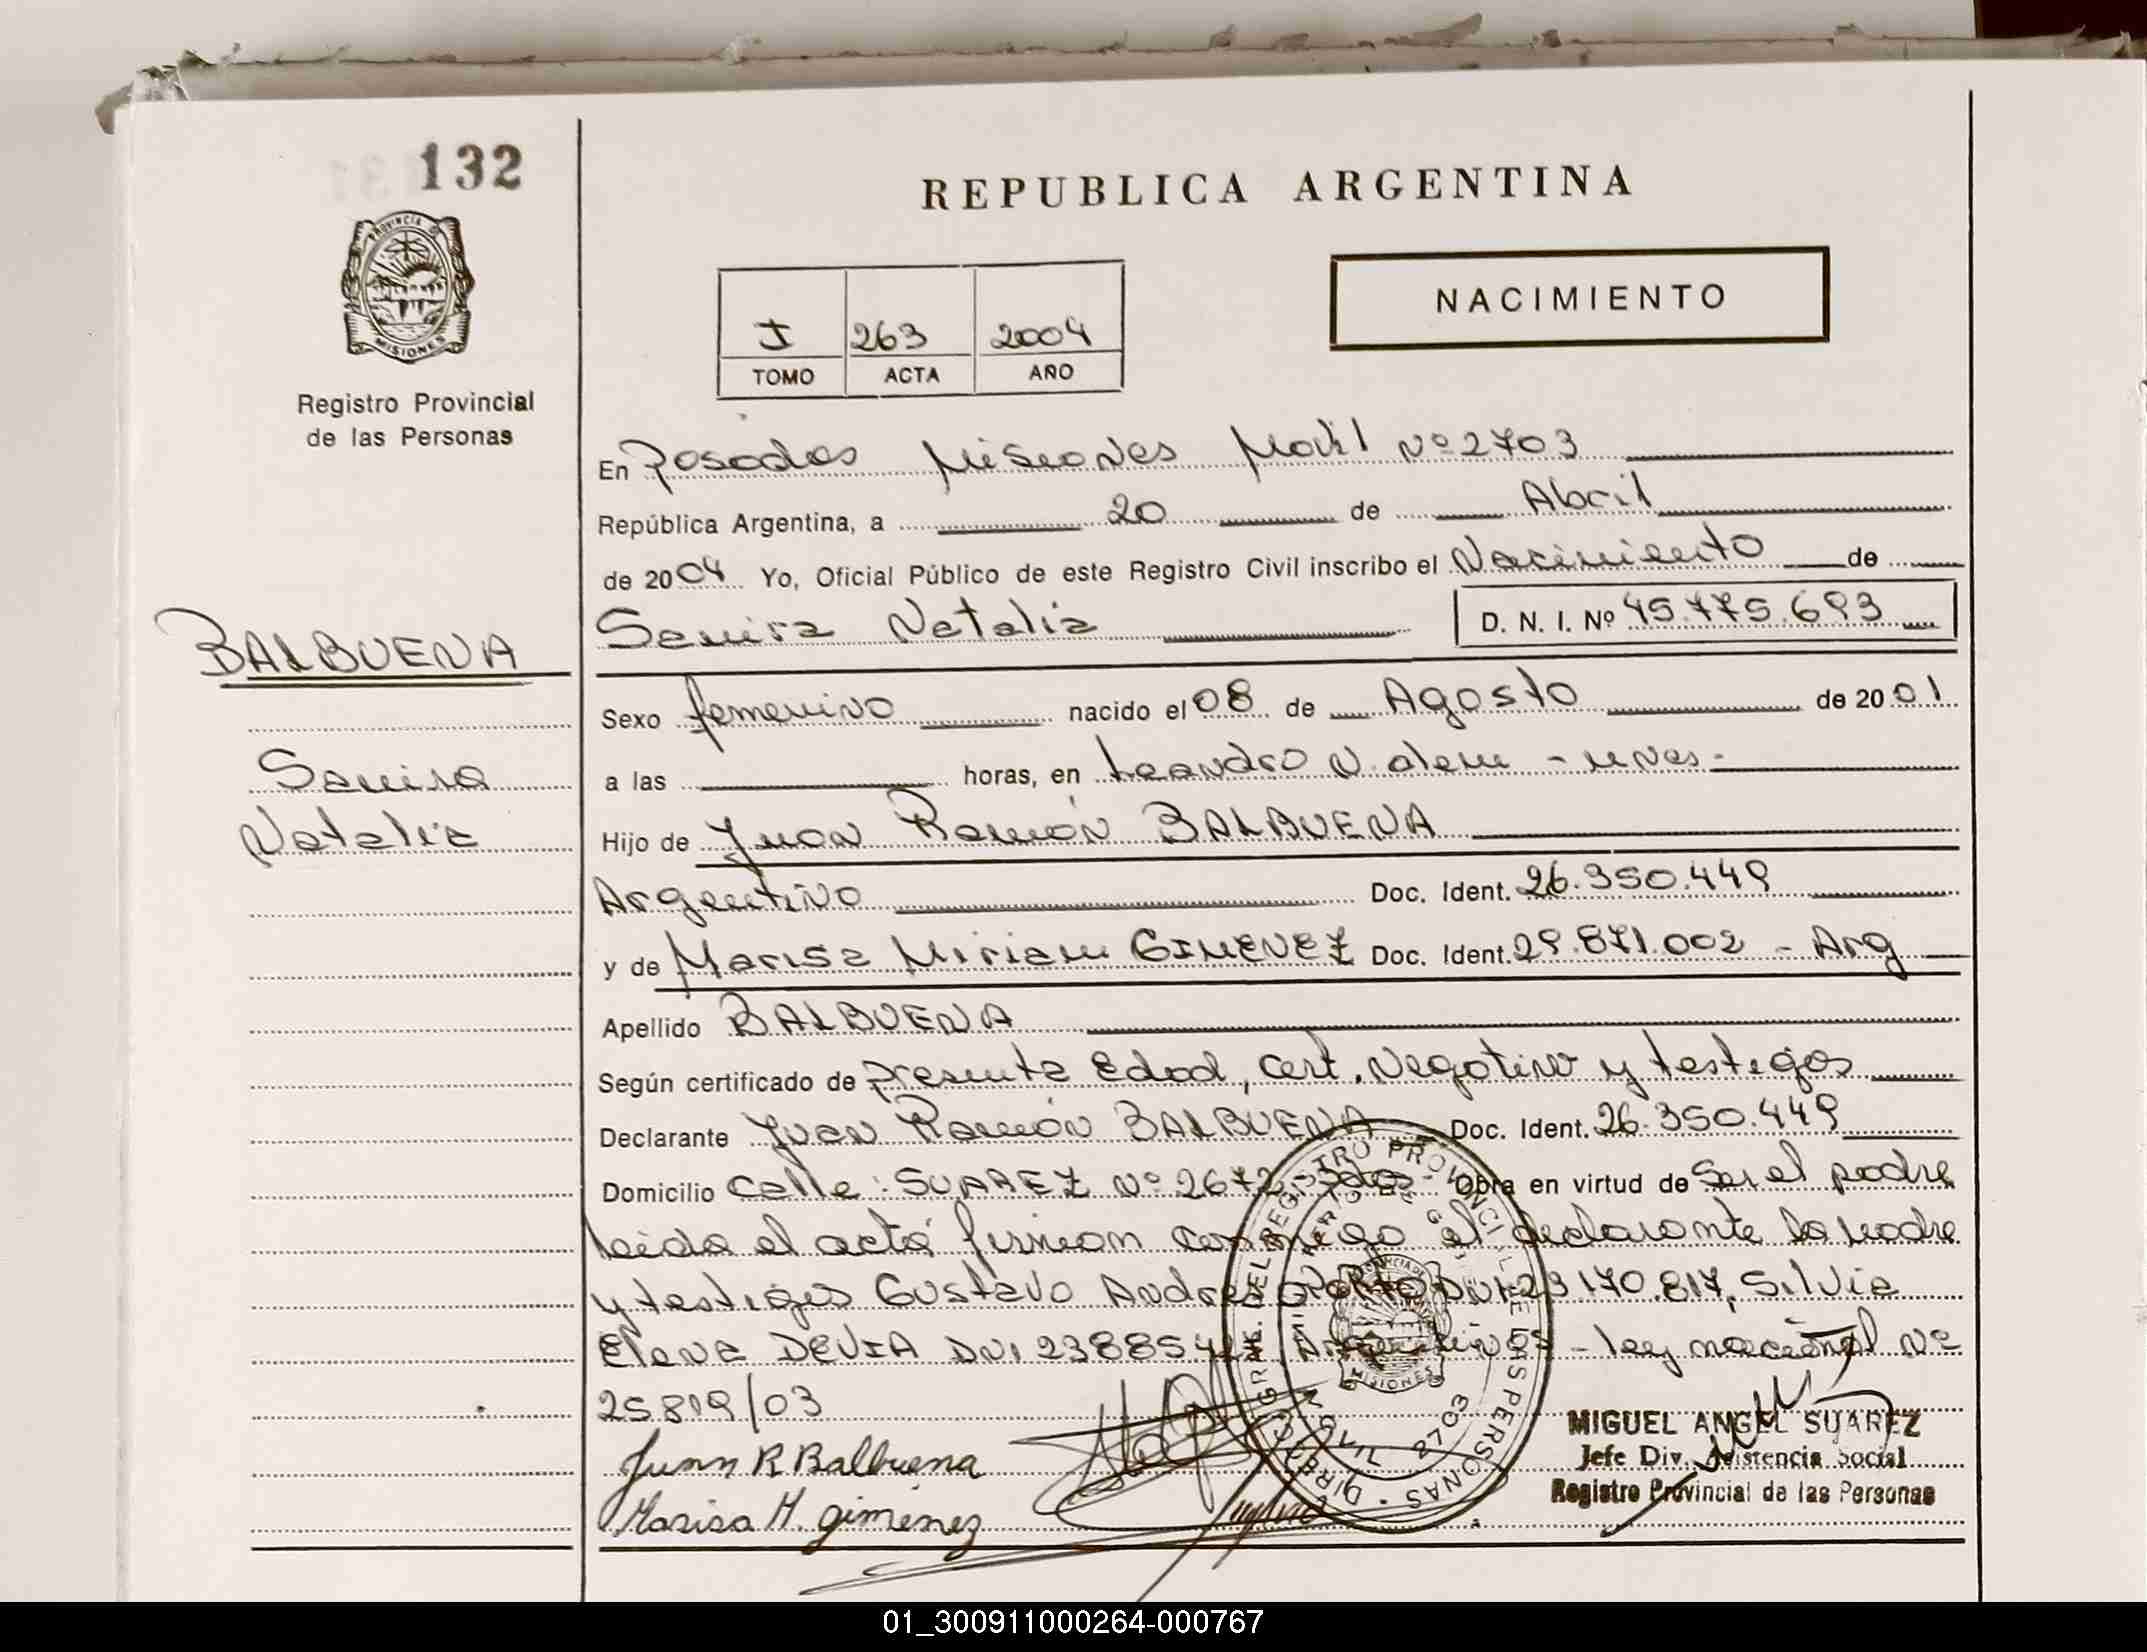 132
PROVINCIA DE
MISIONES
Registro Provincial
de las Personas
BALBUENA
Samira
Natalia
REPUBLICA ARGENTINA
NACIMIENTO
I 263 2004
TOMO ACTA AÑO
En Posadas Misiones Movil Nº 2703
República Argentina, a 20 de Abril
de 2004 Yo, Oficial Público de este Registro Civil inscribo el Nacimiento de
Samira Natalia D. N. I. Nº 45.775.693
Sexo femenino nacido el 08 de Agosto de 2001
a las horas, en Leandro N. alem - mnes-
Hijo de Juan Ramón BALBUENA
Argentino Doc. Ident. 26.350.449
y de Marisa Miriam GIMENEZ Doc. Ident. 29.871.002 - Arg
Apellido BALBUENA
Según certificado de presunta Edad, cert. Negativo y testigos
Declarante Juan Ramón BALBUENA Doc. Ident. 26.350.449
Domicilio calle: SUAREZ Nº 2672 - Pdas- Obra en virtud de Ser el padre
leida el acta firman conmigo el declarante la madre
y testigos Gustavo Andres DNI 23170.817, Silvia
Elena DEVIA DNI Argentinos - ley nacional Nº
25819/03
Juan R Balbuena
Marisa M. gimenez
MIGUEL ANGEL SUAREZ
Jefe Div. Asistencia Social
Registro Provincial de las Personas
2703
MISIONES
01_300911000264-000767